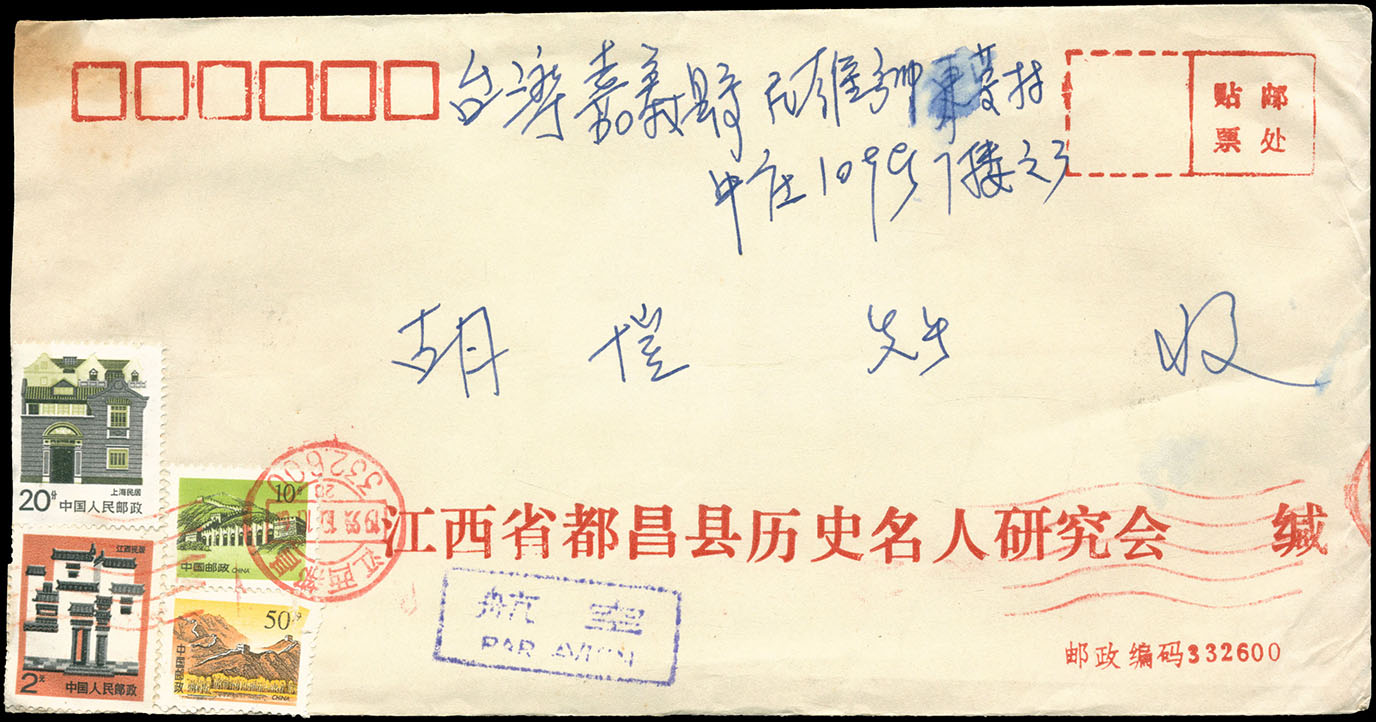 台湾嘉義县
中庄109 7楼之3
贴邮
票处
胡 先生 收
上海民居
20分 中国人民邮政
10分
中国邮政 CHINA
江西民居
2元 中国人民邮政
50分
中国邮政
CHINA
332600
江西都昌
江西省都昌县历史名人研究会 缄
航空
PAR AVION
邮政编码332600